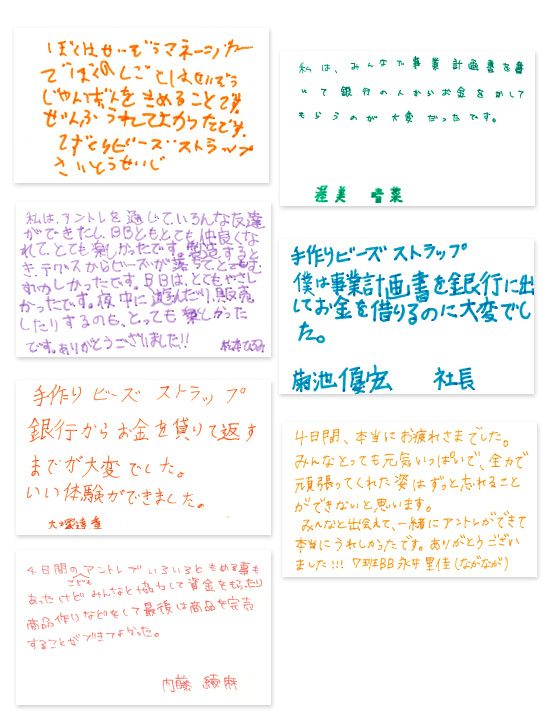 ぼくはせいぞうマネージャー
でぼくのしごとはせいぞう
じゅんばんをきめることです
ぜんぶうれてよかったです.
てずくりビーズストラップ
さいとうせいじ
私は、アントレを通じていろんな友達
ができたし、BBともとても仲良くな
れて、とても楽しかったです。製造すると
き、テグスからビーズが落ちて、とてもむ
ずかしかったです。BBは、とてもやさし
かったです。夜中に遊んだり、販売
したりするのも、とっても楽しかった
です。ありがとうございました!!
手作りビーズ ストラップ
銀行からお金を貸りて返す
までが大変でした。
いい体験ができました。
4日間のアントレでいろいろともめる事も
あったけどみんなと協力して資金をもらったり
商品作りなどをして最後は商品を完売
することができてよかった。
内藤
私は、みんなで事業計画書を書
いて銀行の人からお金をかして
もらうのが大変だったです。
渥美
手作りビーズ ストラップ
僕は事業計画書を銀行に出
してお金を借りるのに大変でし
た。
菊池優宏 社長
4日間、本当にお疲れさまでした。
みんなとっても元気いっぱいで、全力で
頑張ってくれた姿はずっと忘れること
ができないと思います。
みんなと出会えて、一緒にアントレができて
本当にうれしかったです。ありがとうござい
ました!!! 7班BB永井里佳(ながなが)